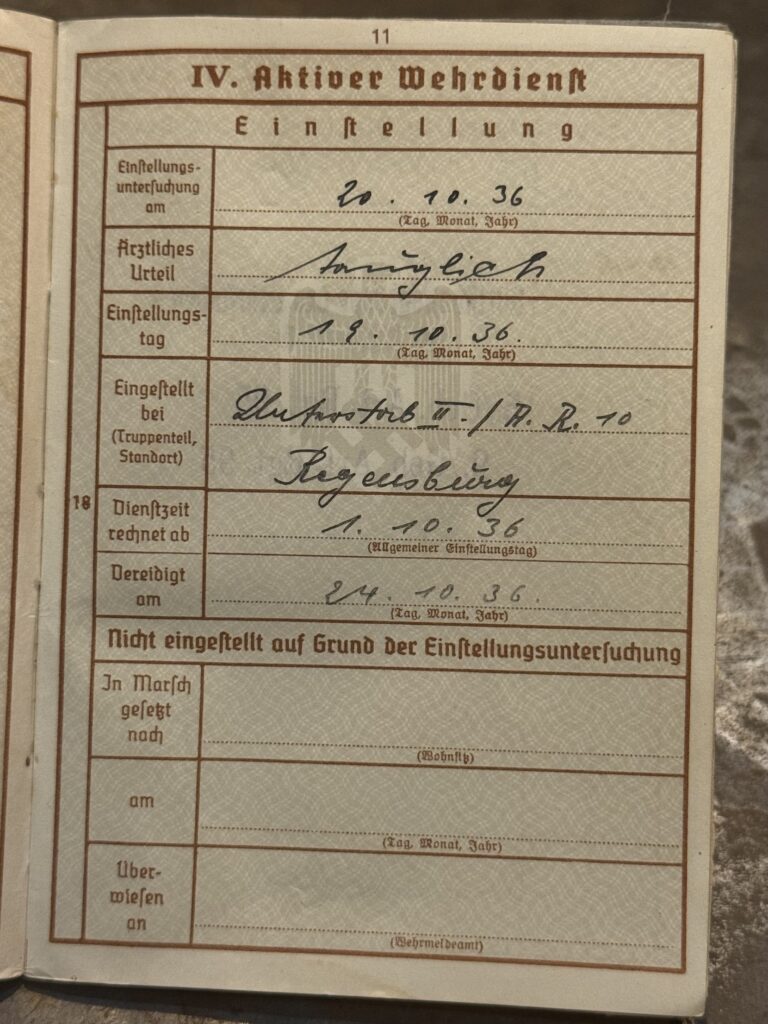 11
IV. Aktiver Wehrdienst
Einstellung
Einstellungs-
untersuchung
am
20. 10. 36
(Tag, Monat, Jahr)
Ärztliches
Urteil
tauglich
Einstellungs-
tag
19. 10. 36.
(Tag, Monat, Jahr)
Eingestellt
bei
(Truppenteil,
Standort)
Unterstab II. / A. R. 10
Regensburg
18
Dienstzeit
rechnet ab
1. 10. 36
(Allgemeiner Einstellungstag)
Vereidigt
am
24. 10. 36.
(Tag, Monat, Jahr)
Nicht eingestellt auf Grund der Einstellungsuntersuchung
In Marsch
gesetzt
nach
(Wohnsitz)
am
(Tag, Monat, Jahr)
Über-
wiesen
an
(Wehrmeldeamt)